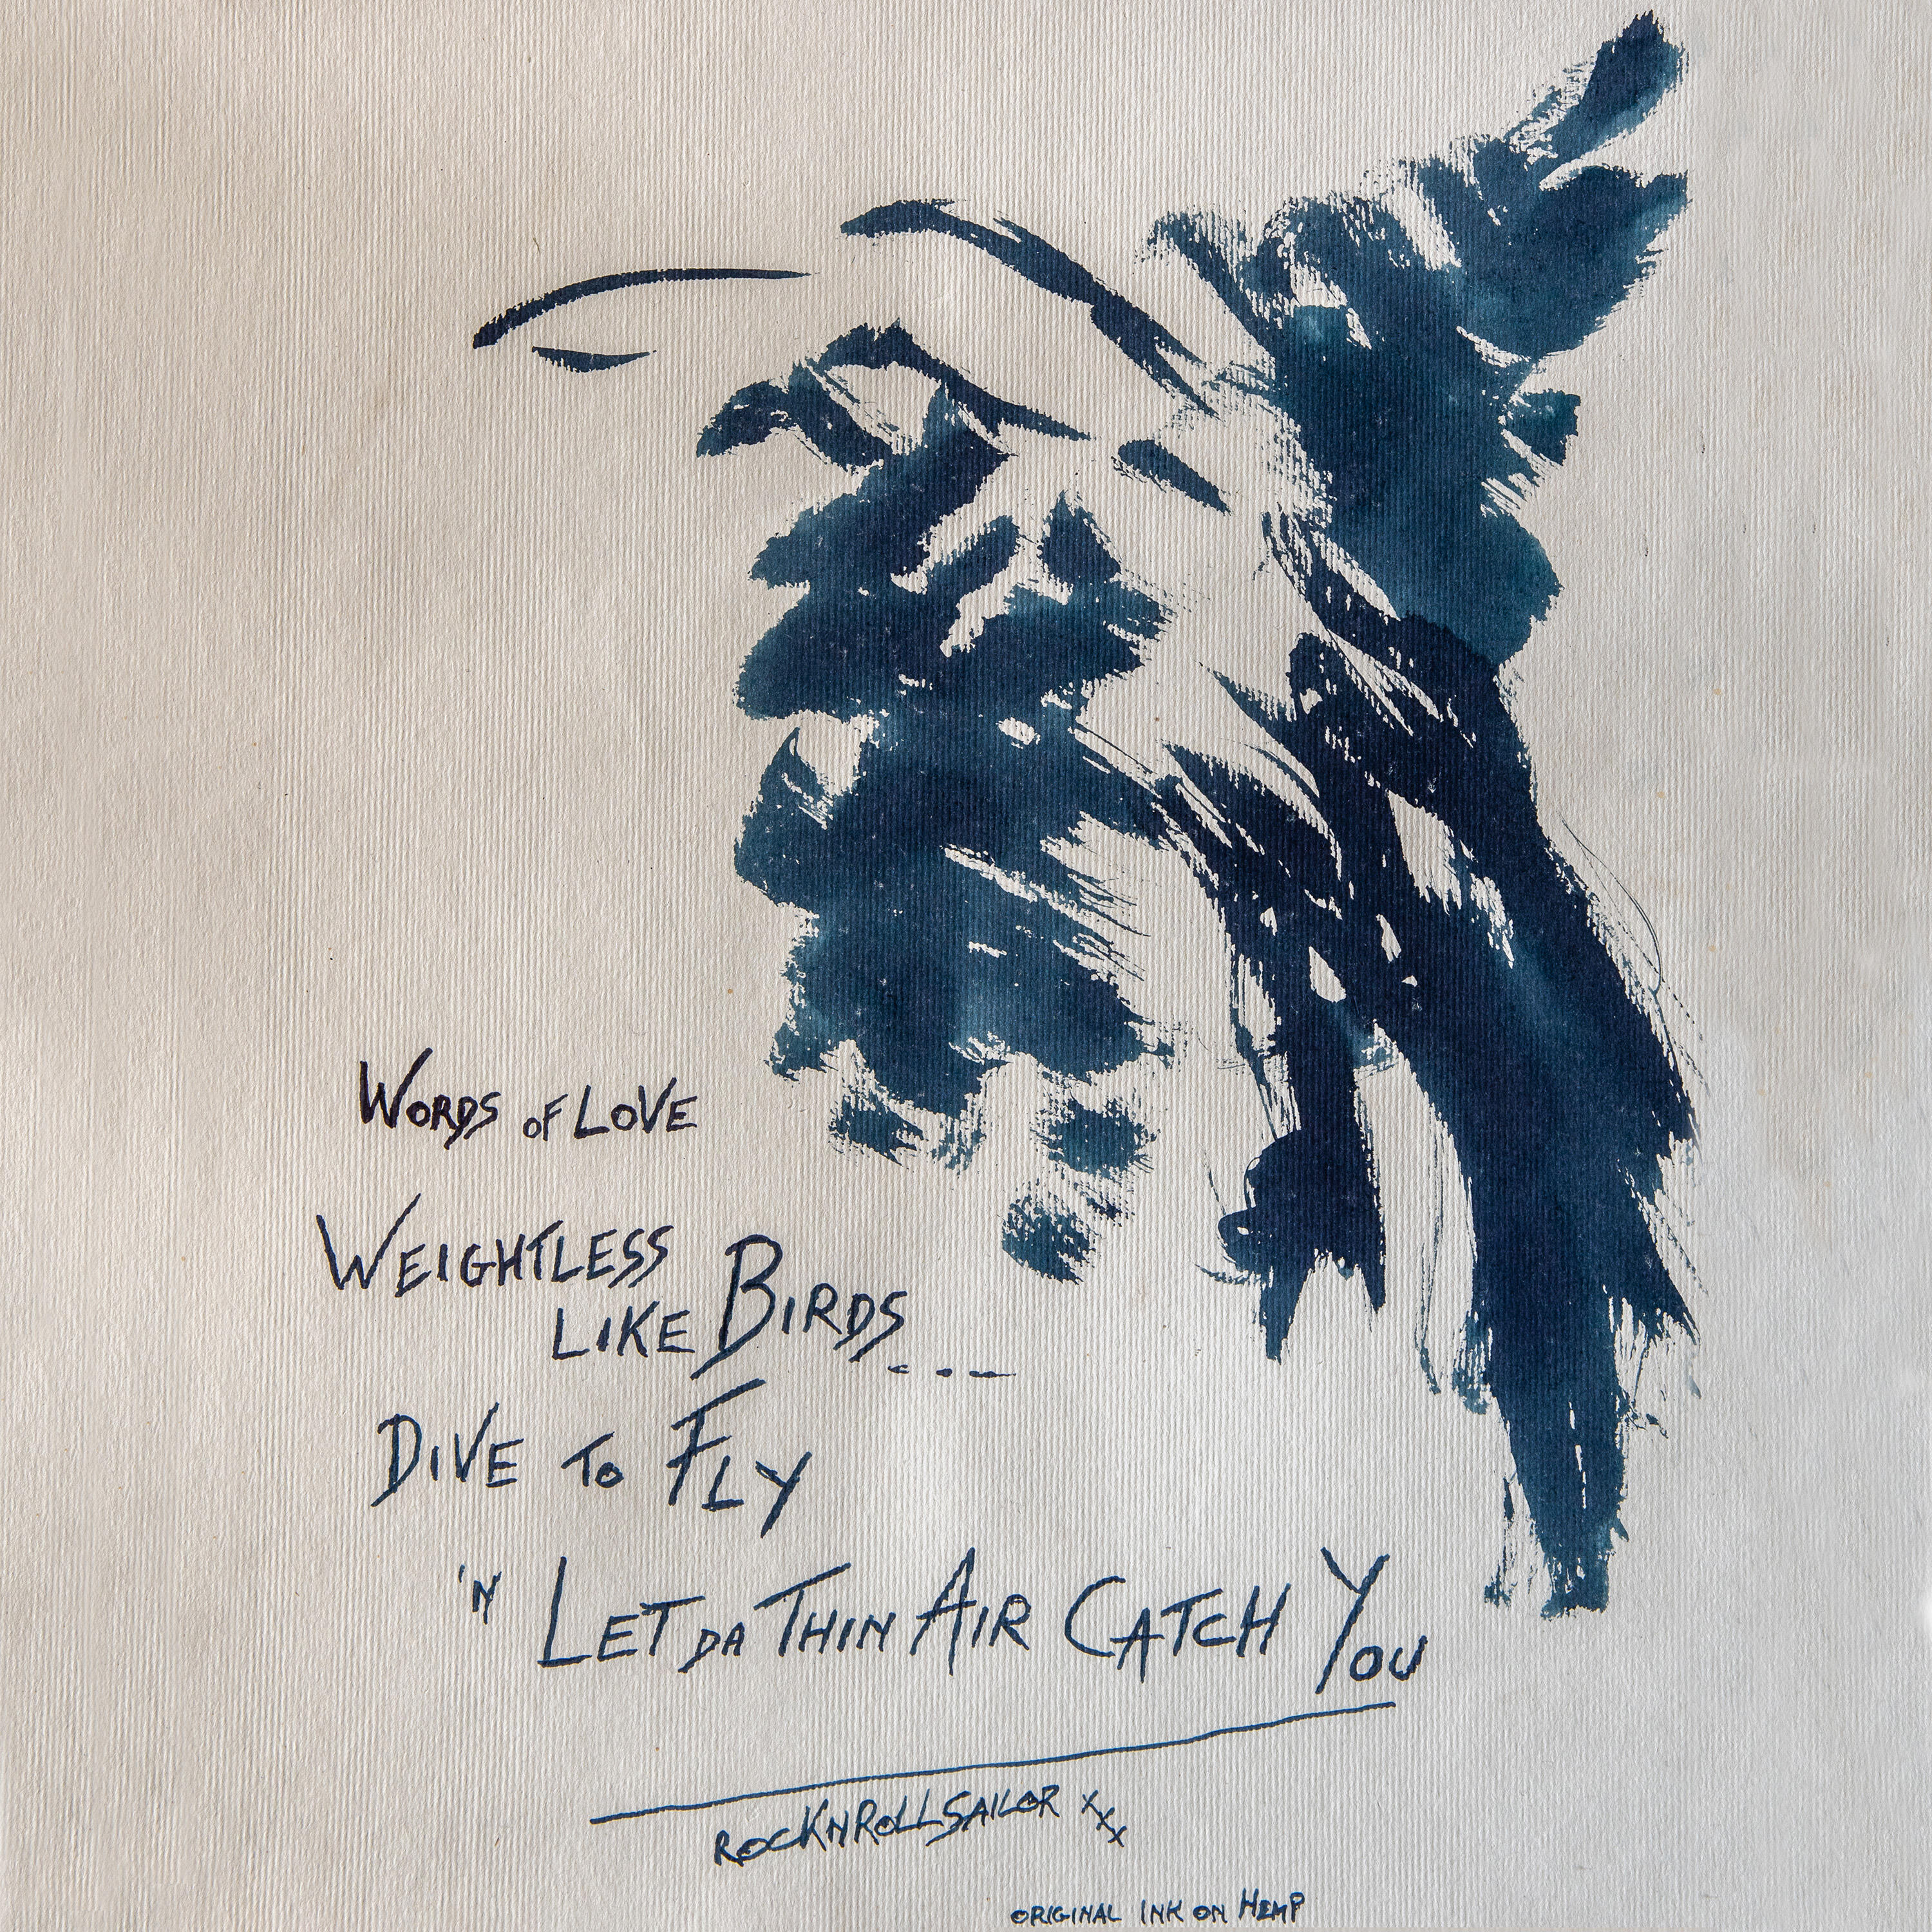 WORDS OF LOVE
WEIGHTLESS
LIKE BIRDS...
DIVE TO FLY
'N LET DA THIN AIR CATCH YOU
ROCKNROLLSAILOR xxx
ORIGINAL INK ON HEMP